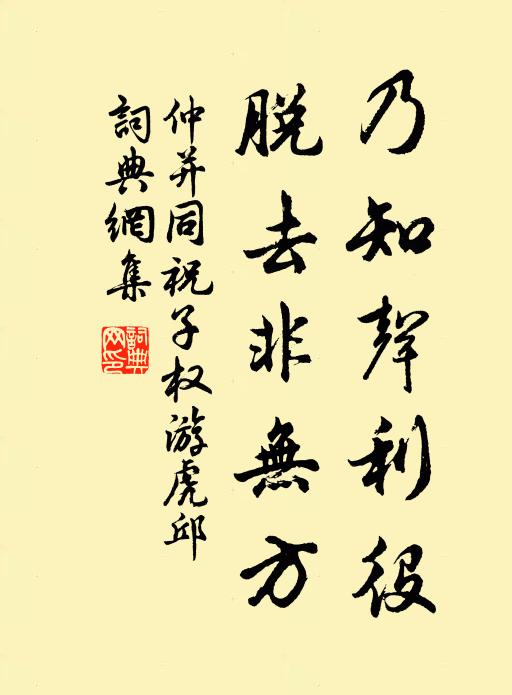 乃知聲利役
脱去非無方
仲并同祝子权游虎邱
詞典網集
詞典网印